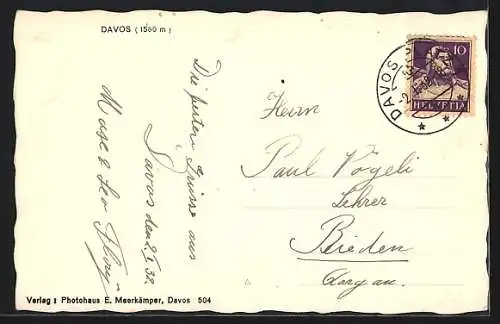 DAVOS (1560 m)
Die besten Grüsse aus
Davos den 2.I.32.
DAVOS
10
HELVETIA
Herrn
Paul Vögeli
Lehrer
Rieden
Aargau.
Verlag : Photohaus E. Meerkämper, Davos 504